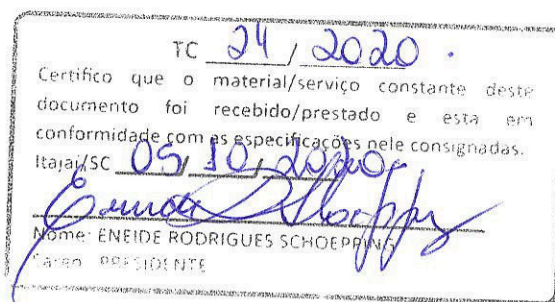 TC 24 / 2020 .
Certifico que o material/serviço constante deste
documento foi recebido/prestado e esta em
conformidade com as especificações nele consignadas.
Itajaí/SC 05 / 10 / 2020
Nome: ENEIDE RODRIGUES SCHOEPPING
Cargo: PRESIDENTE